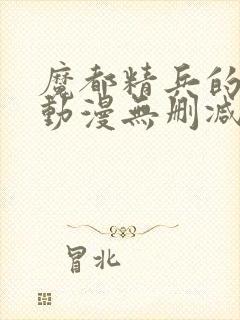 魔都精兵的
動漫無刪減
冒北